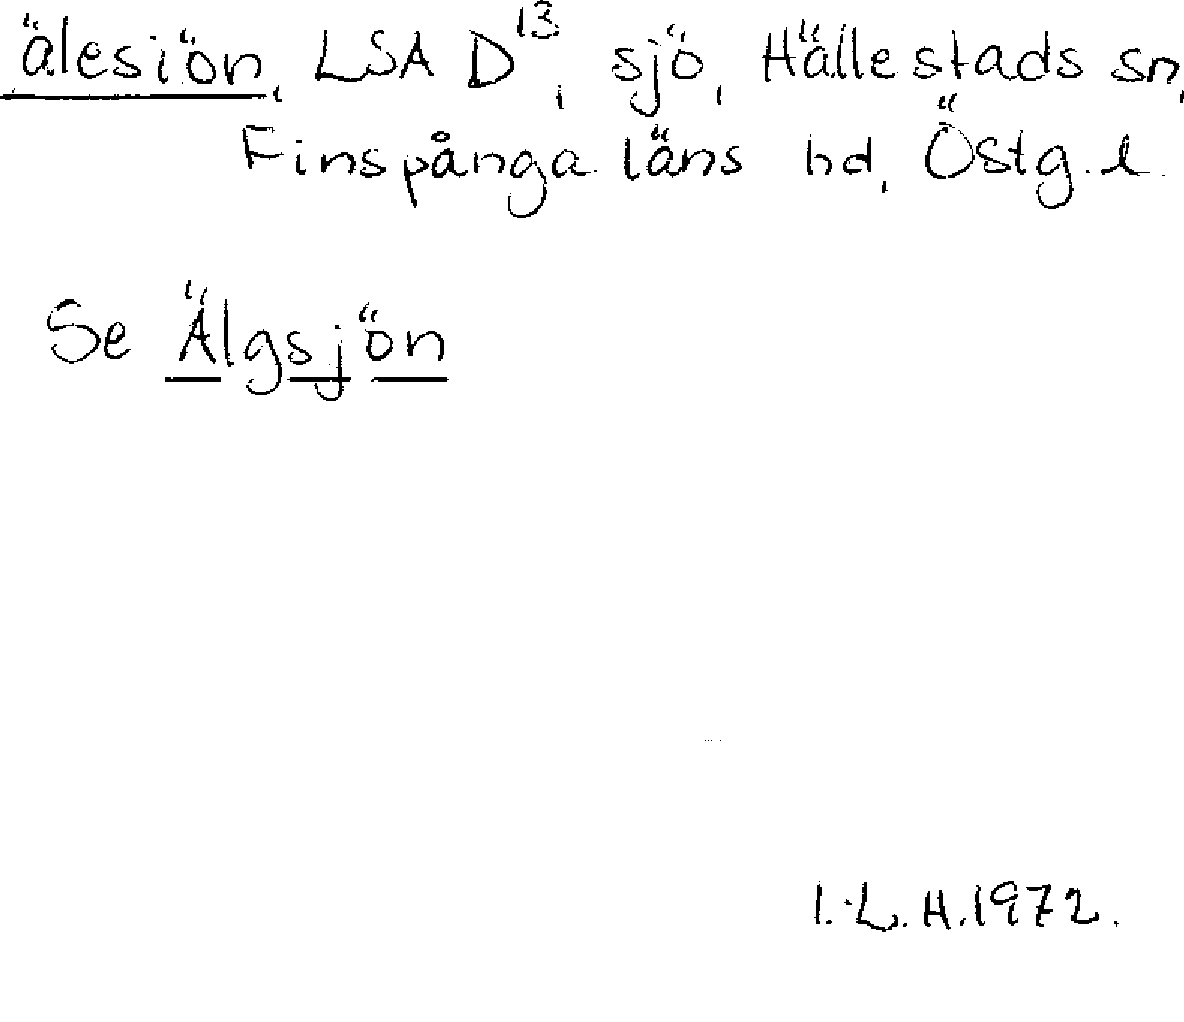 älesiön, LSA D¹³, sjö, Hällestads sn,
Finspånga läns hd, Östg. l.
Se Älgsjön
I. L. H. 1972.